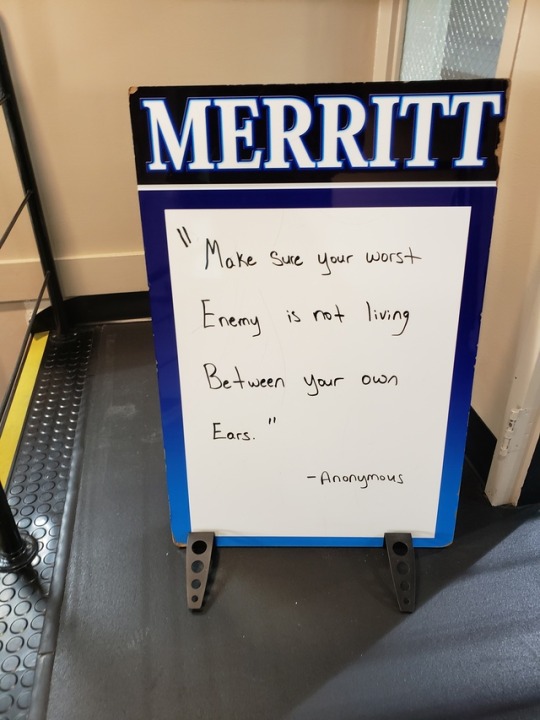 MERRITT
"Make sure your worst
Enemy is not living
Between your own
Ears."
-Anonymous